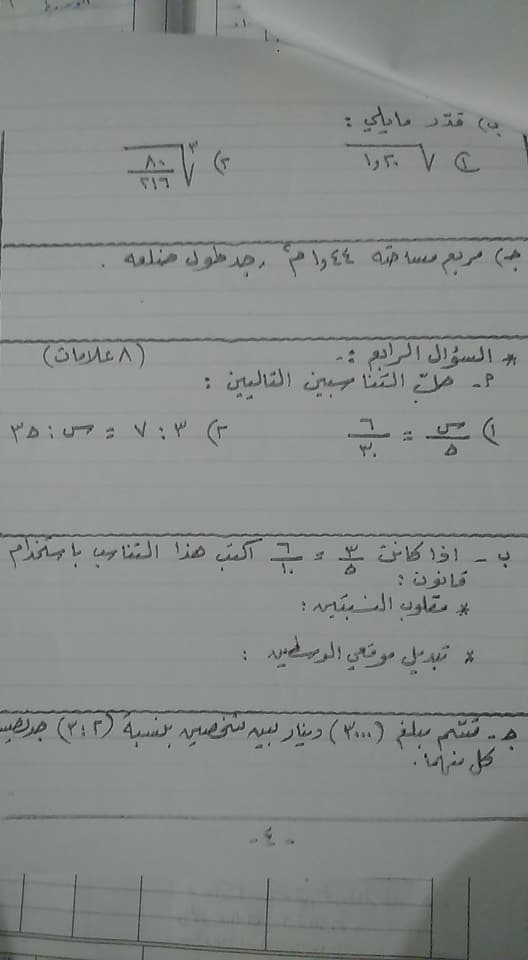 ب) قدّر مايلي :
١) √١٫٢٠ ٢) ³√٨٠/٢١٦
جـ) مربع مساحته ١٫٤٤ م² ، جد طول ضلعه .
* السؤال الرابع :- (٨ علامات)
٢- حلّ التناسبين التاليين :
١) س/٥ = ٦/٣٠ ٢) ٣ : ٧ = س : ٣٥
ب - اذا كانت ٣/٥ = ٦/١٠ اكتب هذا التناسب باستخدام
قانون :
* مقلوب النسبتين :
* تبديل موقعي الوسطين :
جـ - قسّم مبلغ (٣٠٠٠) دينار بين شخصين بنسبة (٣:٢) جد نصيب
كل منهما .
- ٤ -